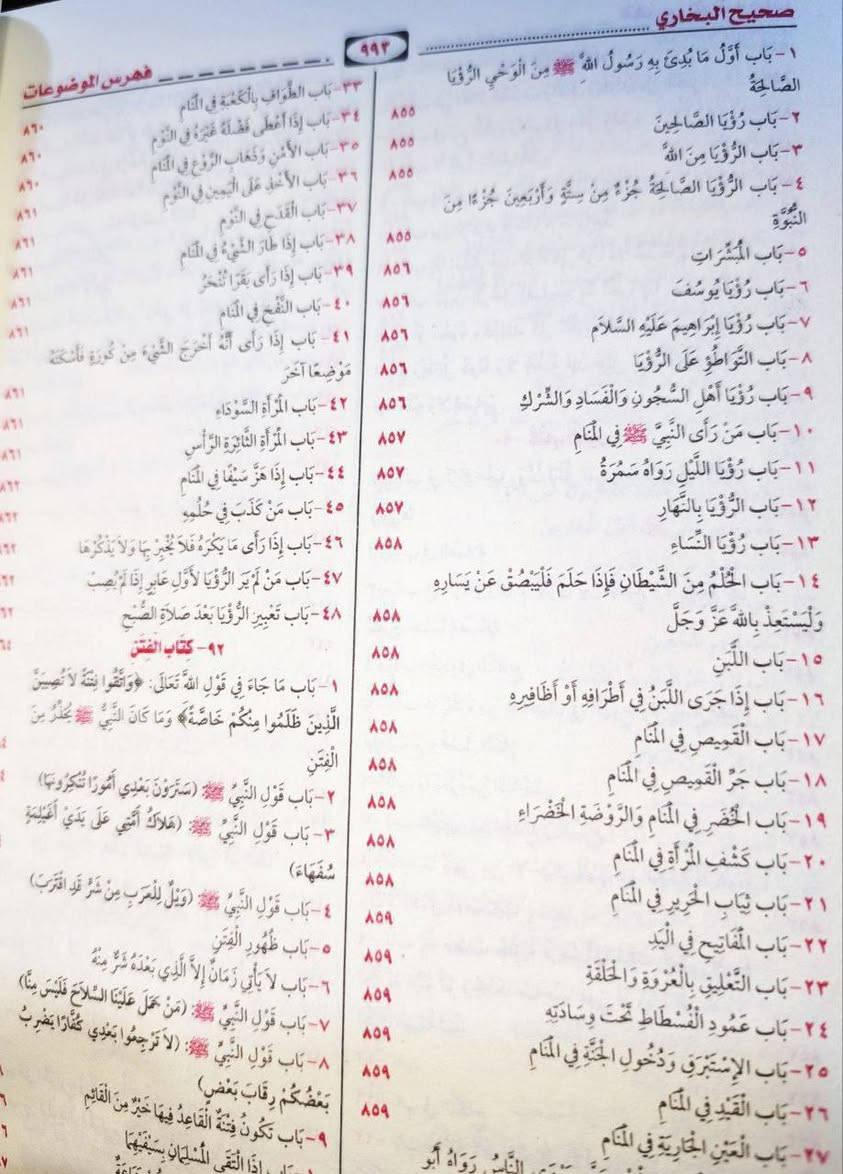 صحيح البخاري
٩٩٣
فهرس الموضوعات
١- بَاب أَوَّلُ مَا بُدِئَ بِهِ رَسُولُ اللهِ ﷺ مِنَ الْوَحْيِ الرُّؤْيَا
الصَّالِحَةُ ٨٥٥
٢- بَاب رُؤْيَا الصَّالِحِينَ ٨٥٥
٣- بَاب الرُّؤْيَا مِنَ اللهِ ٨٥٥
٤- بَاب الرُّؤْيَا الصَّالِحَةُ جُزْءٌ مِنْ سِتَّةٍ وَأَرْبَعِينَ جُزْءًا مِنَ
النُّبُوَّةِ ٨٥٥
٥- بَاب الْمُبَشِّرَاتِ ٨٥٦
٦- بَاب رُؤْيَا يُوسُفَ ٨٥٦
٧- بَاب رُؤْيَا إِبْرَاهِيمَ عَلَيْهِ السَّلَام ٨٥٦
٨- بَاب التَّوَاطُؤُ عَلَى الرُّؤْيَا ٨٥٦
٩- بَاب رُؤْيَا أَهْلِ السُّجُونِ وَالْفَسَادِ وَالشِّرْكِ ٨٥٦
١٠- بَاب مَنْ رَأَى النَّبِيَّ ﷺ فِي الْمَنَامِ ٨٥٧
١١- بَاب رُؤْيَا اللَّيْلِ رَوَاهُ سَمُرَةُ ٨٥٧
١٢- بَاب الرُّؤْيَا بِالنَّهَارِ ٨٥٧
١٣- بَاب رُؤْيَا النِّسَاءِ ٨٥٨
١٤- بَاب الْحُلْمُ مِنَ الشَّيْطَانِ فَإِذَا حَلَمَ فَلْيَبْصُقْ عَنْ يَسَارِهِ
وَلْيَسْتَعِذْ بِاللهِ عَزَّ وَجَلَّ ٨٥٨
١٥- بَاب اللَّبَنِ ٨٥٨
١٦- بَاب إِذَا جَرَى اللَّبَنُ فِي أَطْرَافِهِ أَوْ أَظَافِيرِهِ ٨٥٨
١٧- بَاب الْقَمِيصِ فِي الْمَنَامِ ٨٥٨
١٨- بَاب جَرِّ الْقَمِيصِ فِي الْمَنَامِ ٨٥٨
١٩- بَاب الْخُضَرِ فِي الْمَنَامِ وَالرَّوْضَةِ الْخَضْرَاءِ ٨٥٨
٢٠- بَاب كَشْفِ الْمَرْأَةِ فِي الْمَنَامِ ٨٥٨
٢١- بَاب ثِيَابِ الْحَرِيرِ فِي الْمَنَامِ ٨٥٨
٢٢- بَاب الْمَفَاتِيحِ فِي الْيَدِ ٨٥٩
٢٣- بَاب التَّعْلِيقِ بِالْعُرْوَةِ وَالْحَلْقَةِ ٨٥٩
٢٤- بَاب عَمُودِ الْفُسْطَاطِ تَحْتَ وِسَادَتِهِ ٨٥٩
٢٥- بَاب الإِسْتَبْرَقِ وَدُخُولِ الْجَنَّةِ فِي الْمَنَامِ ٨٥٩
٢٦- بَاب الْقَيْدِ فِي الْمَنَامِ ٨٥٩
٢٧- بَاب الْعَيْنِ الْجَارِيَةِ فِي الْمَنَامِ ٨٥٩
النَّاسُ رَوَاهُ أَبُو
٣٣- بَاب الطَّوَافِ بِالْكَعْبَةِ فِي الْمَنَامِ ٨٦٠
٣٤- بَاب إِذَا أَعْطَى فَضْلَهُ غَيْرَهُ فِي النَّوْمِ ٨٦٠
٣٥- بَاب الأَمْنِ وَذَهَابِ الرَّوْعِ فِي الْمَنَامِ ٨٦٠
٣٦- بَاب الأَخْذِ عَلَى الْيَمِينِ فِي النَّوْمِ ٨٦١
٣٧- بَاب الْقَدَحِ فِي النَّوْمِ ٨٦١
٣٨- بَاب إِذَا طَارَ الشَّيْءُ فِي الْمَنَامِ ٨٦١
٣٩- بَاب إِذَا رَأَى بَقَرًا تُنْحَرُ ٨٦١
٤٠- بَاب النَّفْخِ فِي الْمَنَامِ ٨٦١
٤١- بَاب إِذَا رَأَى أَنَّهُ أَخْرَجَ الشَّيْءَ مِنْ كُورَةٍ فَأَسْكَنَهُ
مَوْضِعًا آخَرَ ٨٦١
٤٢- بَاب الْمَرْأَةِ السَّوْدَاءِ ٨٦١
٤٣- بَاب الْمَرْأَةِ الثَّائِرَةِ الرَّأْسِ ٨٦١
٤٤- بَاب إِذَا هَزَّ سَيْفًا فِي الْمَنَامِ
٤٥- بَاب مَنْ كَذَبَ فِي حُلُمِهِ
٤٦- بَاب إِذَا رَأَى مَا يَكْرَهُ فَلَا يُخْبِرْ بِهَا وَلَا يَذْكُرْهَا
٤٧- بَاب مَنْ لَمْ يَرَ الرُّؤْيَا لأَوَّلِ عَابِرٍ إِذَا لَمْ يُصِبْ
٤٨- بَاب تَعْبِيرِ الرُّؤْيَا بَعْدَ صَلَاةِ الصُّبْحِ
٩٢- كِتَاب الْفِتَنِ
١- بَاب مَا جَاءَ فِي قَوْلِ اللهِ تَعَالَى: ﴿وَاتَّقُوا فِتْنَةً لَا تُصِيبَنَّ
الَّذِينَ ظَلَمُوا مِنْكُمْ خَاصَّةً﴾ وَمَا كَانَ النَّبِيُّ ﷺ يُحَذِّرُ مِنَ
الْفِتَنِ
٢- بَاب قَوْلِ النَّبِيِّ ﷺ: (سَتَرَوْنَ بَعْدِي أُمُورًا تُنْكِرُونَهَا)
٣- بَاب قَوْلِ النَّبِيِّ ﷺ: (هَلَاكُ أُمَّتِي عَلَى يَدَيْ أُغَيْلِمَةٍ
سُفَهَاءَ)
٤- بَاب قَوْلِ النَّبِيِّ ﷺ: (وَيْلٌ لِلْعَرَبِ مِنْ شَرٍّ قَدِ اقْتَرَبَ)
٥- بَاب ظُهُورِ الْفِتَنِ
٦- بَاب لَا يَأْتِي زَمَانٌ إِلَّا الَّذِي بَعْدَهُ شَرٌّ مِنْهُ
٧- بَاب قَوْلِ النَّبِيِّ ﷺ: (مَنْ حَمَلَ عَلَيْنَا السِّلَاحَ فَلَيْسَ مِنَّا)
٨- بَاب قَوْلِ النَّبِيِّ ﷺ: (لَا تَرْجِعُوا بَعْدِي كُفَّارًا يَضْرِبُ
بَعْضُكُمْ رِقَابَ بَعْضٍ)
٩- بَاب تَكُونُ فِتْنَةٌ الْقَاعِدُ فِيهَا خَيْرٌ مِنَ الْقَائِمِ
بَاب إِذَا الْتَقَى الْمُسْلِمَانِ بِسَيْفَيْهِمَا